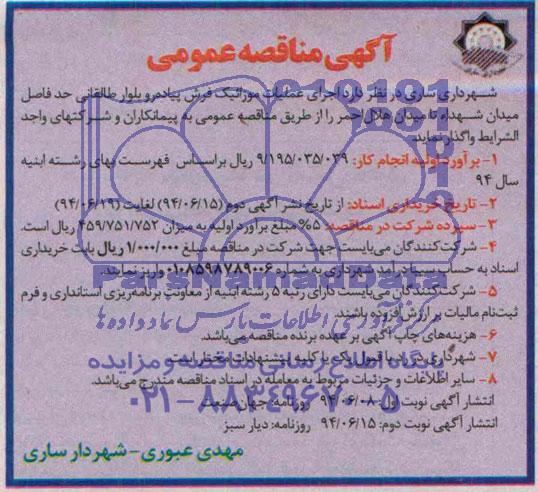 آگهی مناقصه عمومی
شهرداری ساری در نظر دارد اجرای عملیات موزائیک فرش پیاده‌رو بلوار طالقانی حد فاصل
میدان شهداء تا میدان هلال احمر را از طریق مناقصه عمومی به پیمانکاران و شرکتهای واجد
الشرایط واگذار نماید.
۱- برآورد اولیه انجام کار: ۹/۱۹۵/۰۳۵/۰۳۹ ریال براساس فهرست بهای رشته ابنیه
سال ۹۴
۲- تاریخ خریداری اسناد: از تاریخ نشر آگهی دوم (۹۴/۰۶/۱۵) لغایت (۹۴/۰۶/۱۹)
۳- سپرده شرکت در مناقصه: ۵% مبلغ برآورد اولیه به میزان ۴۵۹/۷۵۱/۷۵۲ ریال است.
۴- شرکت‌کنندگان می‌بایست جهت شرکت در مناقصه مبلغ ۱/۰۰۰/۰۰۰ ریال بابت خریداری
اسناد به حساب سیبا درآمد شهرداری به شماره ۰۱۰۸۵۹۸۷۸۹۰۰۶ واریز نمایند.
۵- شرکت‌کنندگان می‌بایست دارای رتبه ۵ رشته ابنیه از معاونت برنامه‌ریزی استانداری و فرم
ثبت‌نام مالیات بر ارزش افزوده باشند.
۶- هزینه‌های چاپ آگهی بر عهده برنده مناقصه می‌باشد.
۷- شهرداری در رد یا قبول یک یا کلیه پیشنهادات مختار است.
۸- سایر اطلاعات و جزئیات مربوط به معامله در اسناد مناقصه مندرج می‌باشد.
انتشار آگهی نوبت اول: ۹۴/۰۶/۰۸ روزنامه: جهان صنعت
انتشار آگهی نوبت دوم: ۹۴/۰۶/۱۵ روزنامه: دیار سبز
مهدی عبوری - شهردار ساری
ParsNamadData
مرکز فرآوری اطلاعات پارس نماد داده ها
پایگاه اطلاع رسانی مناقصه و مزایده
۰۲۱-۸۸۳۴۹۶۷۰-۵